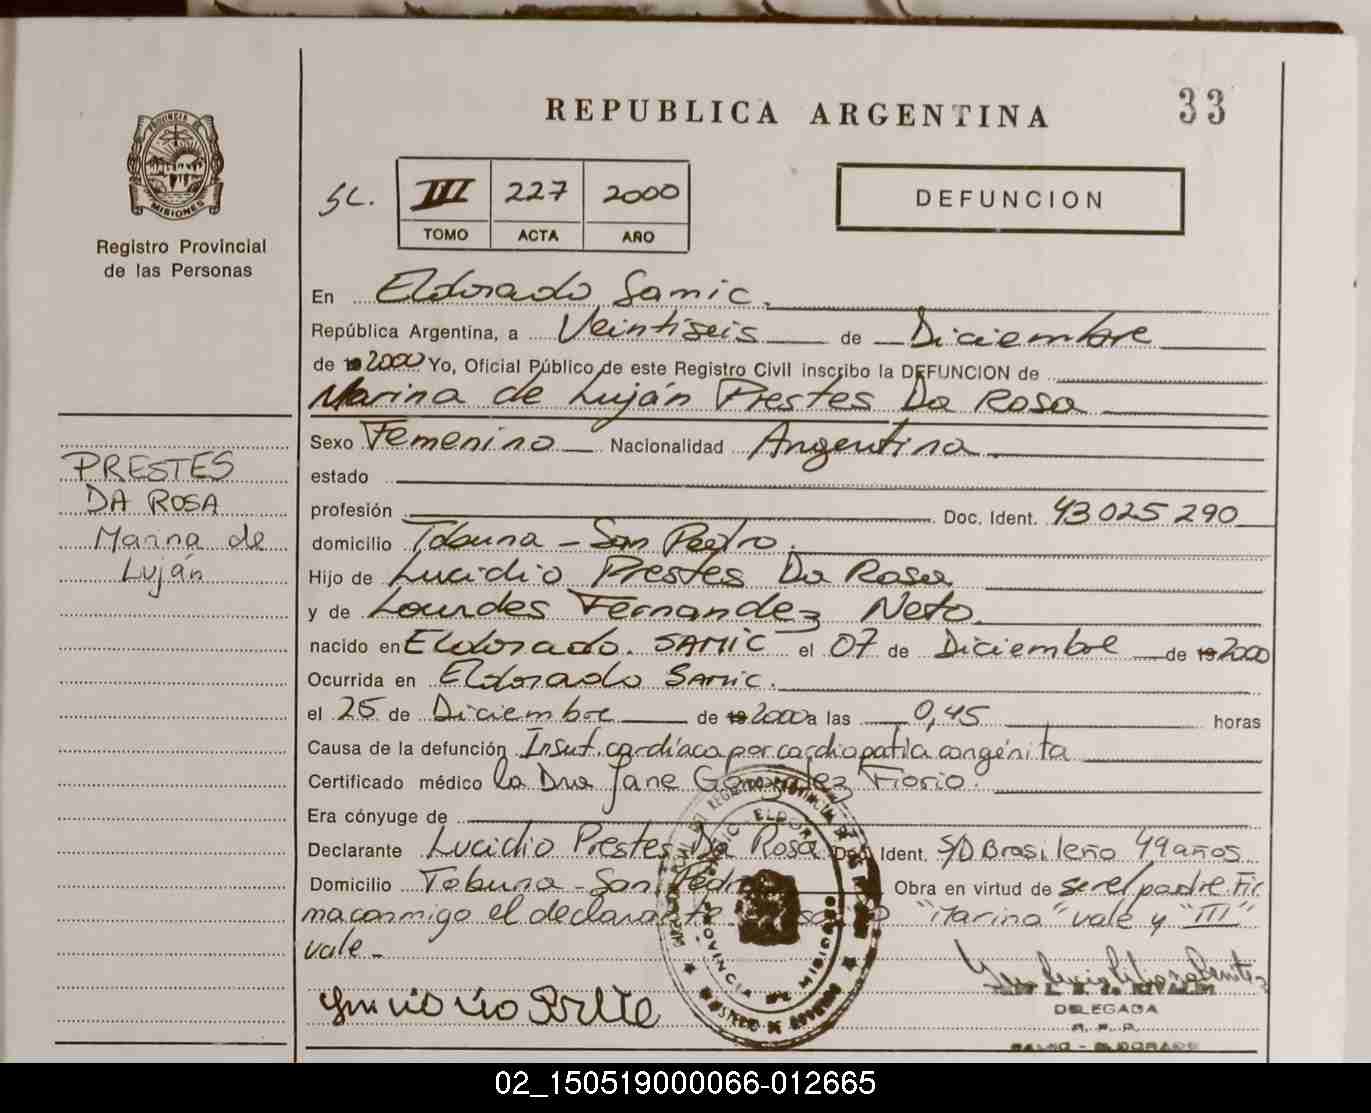 33
REPUBLICA ARGENTINA
PROVINCIA DE
MISIONES
Registro Provincial
de las Personas
SC. III 227 2000
TOMO ACTA AÑO
DEFUNCION
En Eldorado Samic.
República Argentina, a Veintiseis de Diciembre
de 19 2000 Yo, Oficial Público de este Registro Civil inscribo la DEFUNCION de
Marina de Luján Prestes Da Rosa
Sexo Femenino Nacionalidad Argentina.
estado
profesión Doc. Ident. 43 025 290
domicilio Tobuna - San Pedro.
Hijo de Lucidio Prestes Da Rosa
y de Lourdes Fernandez Neto.
nacido en Eldorado. SAMIC el 07 de Diciembre de 19 2000
Ocurrida en Eldorado Samic.
el 25 de Diciembre de 19 2000 a las 0,45 horas
Causa de la defunción Insuf. cardíaca por cardiopatía congénita
Certificado médico la Dra Jane Gonzalez Fiorio.
Era cónyuge de
Declarante Lucidio Prestes Da Rosa Doc. Ident. S/D Brasileño 49 años
Domicilio Tobuna - San Pedro Obra en virtud de ser el padre. Fir
ma conmigo el declarante "Marina" vale y "III"
vale -
PRESTES
DA ROSA
Marina de
Luján
PROVINCIA DE MISIONES
MINISTERIO DE GOBIERNO
DELEGADA
R. P. P.
SAMIC - ELDORADO
02_150519000066-012665